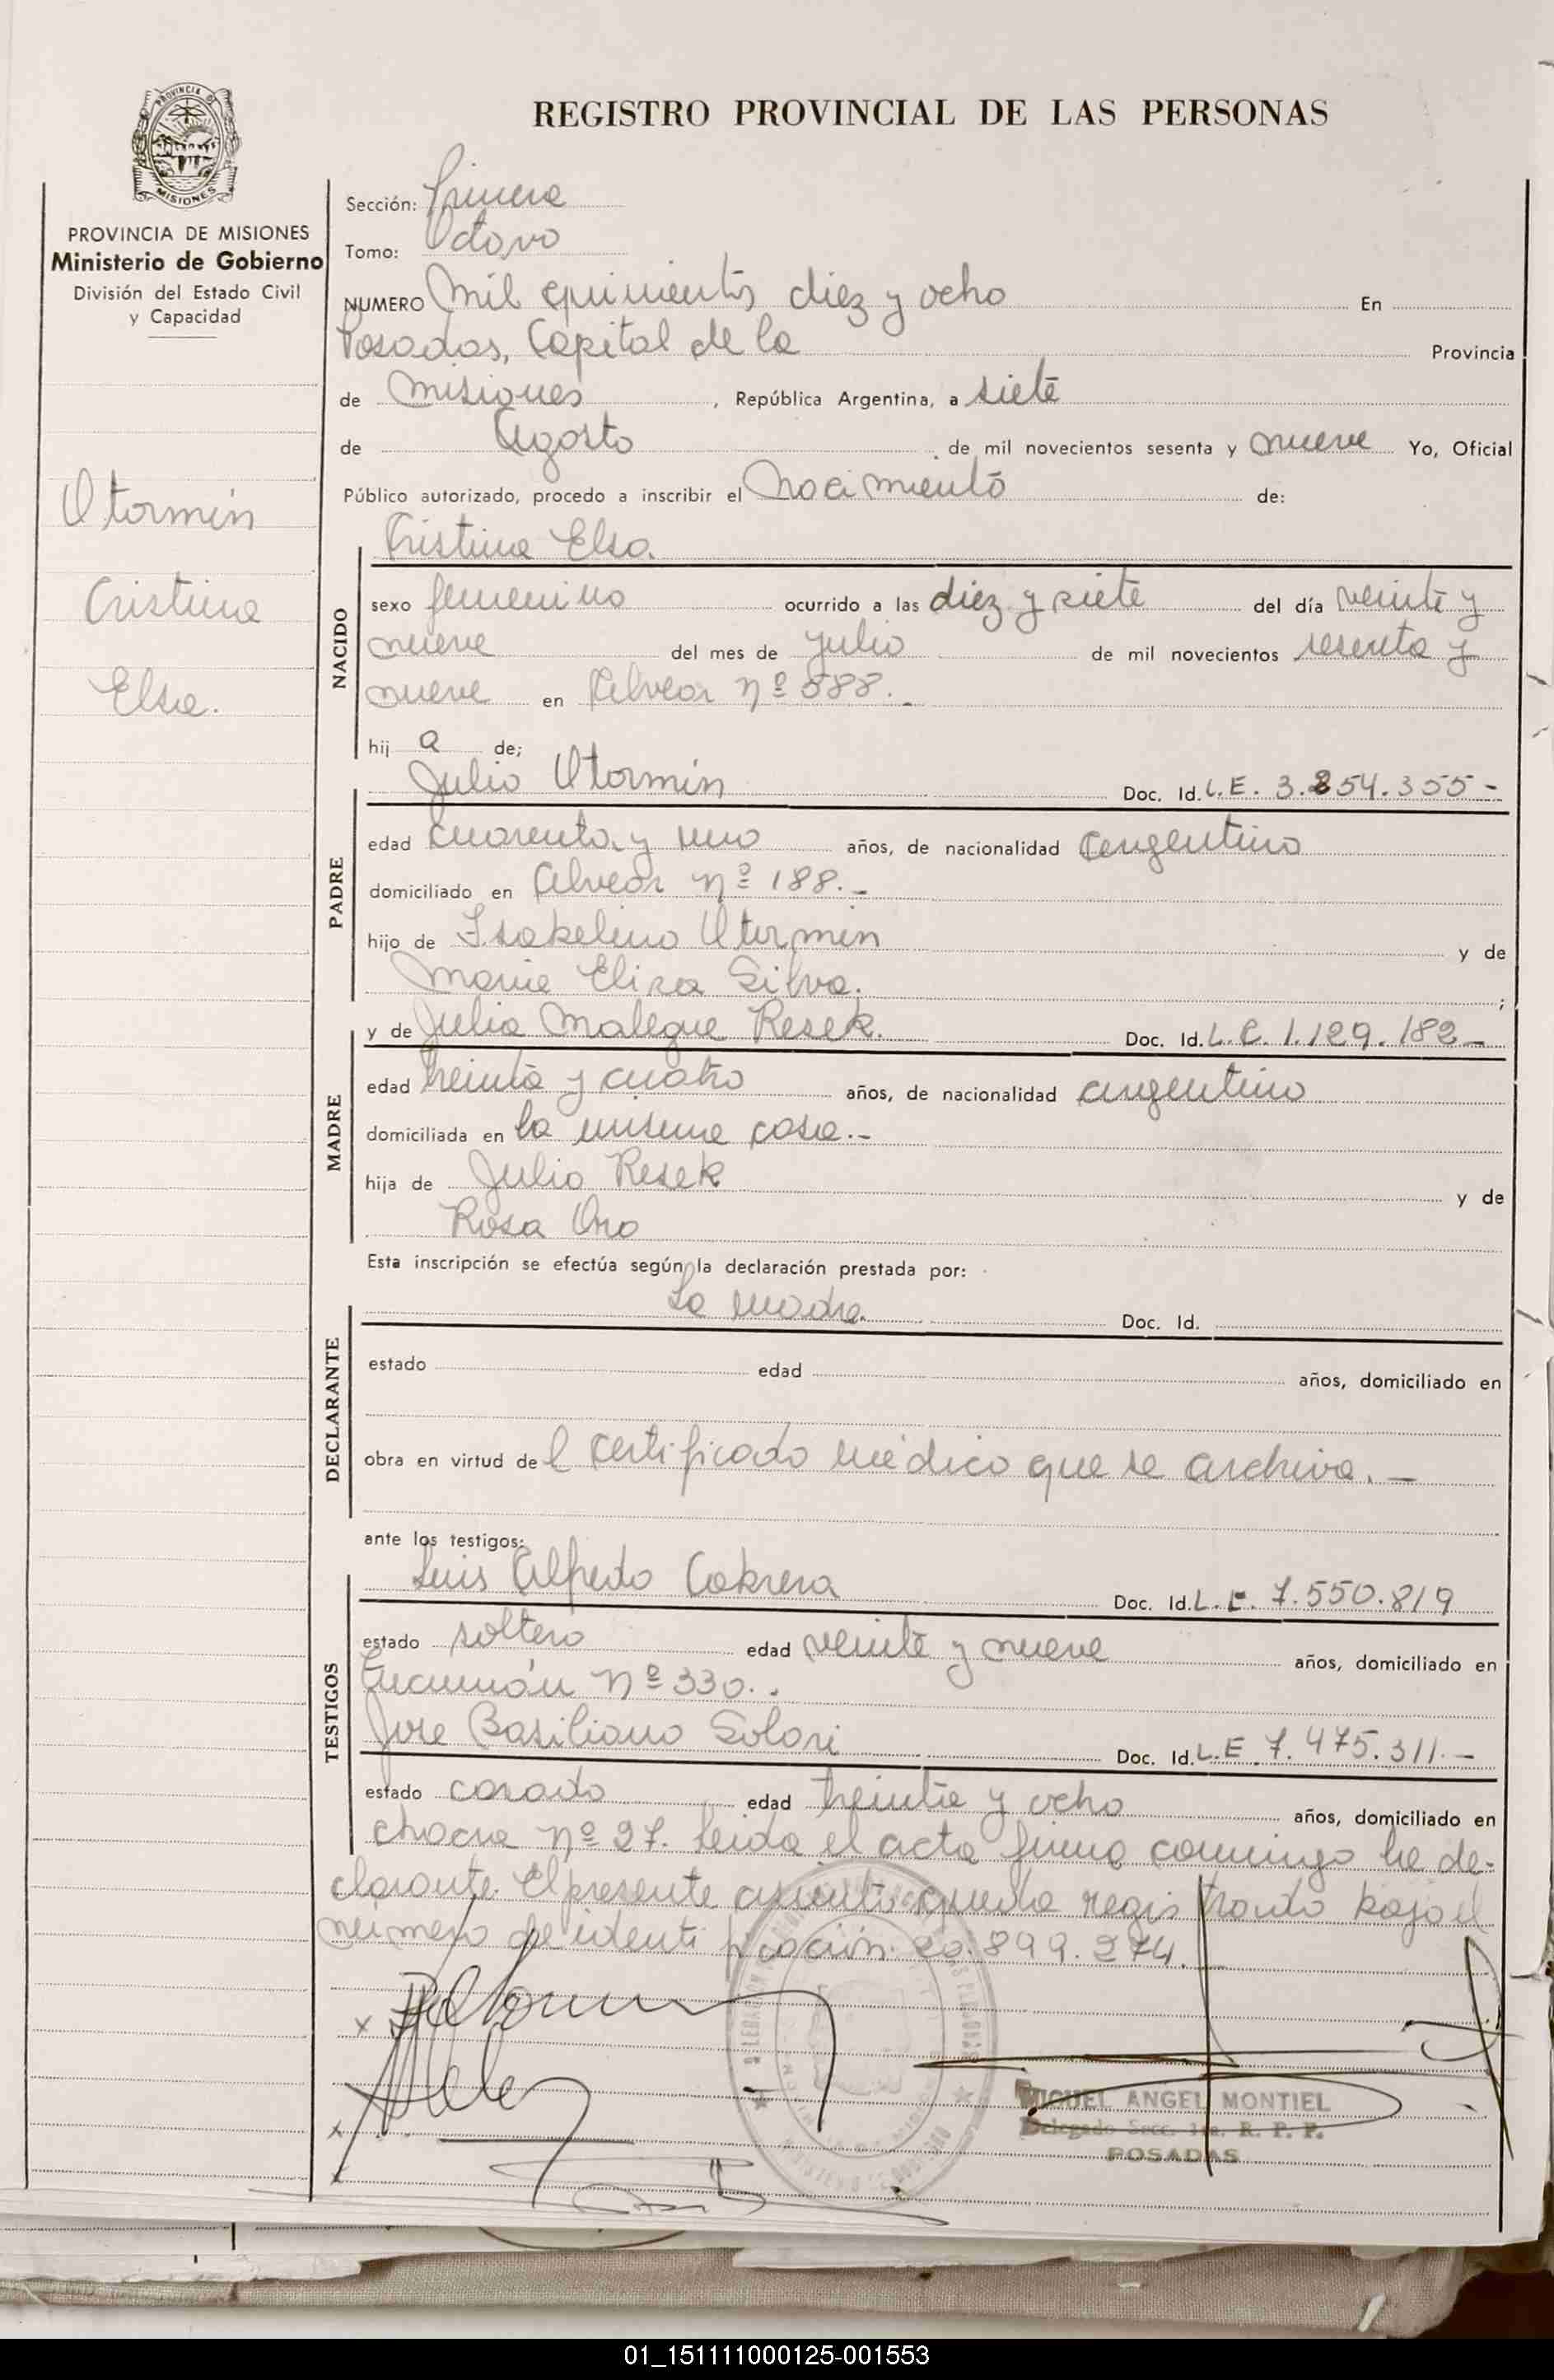 REGISTRO PROVINCIAL DE LAS PERSONAS
PROVINCIA
MISIONES
PROVINCIA DE MISIONES
Ministerio de Gobierno
División del Estado Civil
y Capacidad
Utormin
Cristina
Elsa.
Sección: Primera
Tomo: Octavo
NUMERO Mil quinientos diez y ocho En
Posadas, Capital de la Provincia
de Misiones, República Argentina, a siete
de Agosto de mil novecientos sesenta y nueve Yo, Oficial
Público autorizado, procedo a inscribir el Nacimiento de:
Cristina Elsa.
NACIDO
sexo femenino ocurrido a las diez y siete del día veinte y
nueve del mes de Julio de mil novecientos sesenta y
nueve en Alvear Nº 588.-
hij a de;
Julio Utormin Doc. Id. L.E. 3.854.355-
PADRE
edad cuarenta y uno años, de nacionalidad argentino
domiciliado en Alvear Nº 188.-
hijo de Isabelino Utormin y de
Maria Elisa Silva. ;
y de Julia Malegue Resek. Doc. Id. L.C. 1.129.182-
MADRE
edad treinta y cuatro años, de nacionalidad argentino
domiciliada en la misma casa.-
hija de Julio Resek y de
Rosa Oro
Esta inscripción se efectúa según la declaración prestada por:
La madre. Doc. Id.
DECLARANTE
estado edad años, domiciliado en
obra en virtud del certificado médico que se archiva.-
ante los testigos:
Luis Alfredo Cabrera Doc. Id. L.E. 7.550.819
TESTIGOS
estado soltero edad veinte y nueve años, domiciliado en
Tucumán Nº 330..
Jose Basiliano Solari Doc. Id. L.E. 7.475.311.-
estado casado edad treinta y ocho años, domiciliado en
chacra Nº 27. Leida el acta firma conmigo la de-
clarante. El presente asiento queda registrado bajo el
número de identificación: 20.899.274.
MIGUEL ANGEL MONTIEL
Delegado Secc. 1ra. R. P. P.
POSADAS
01_151111000125-001553